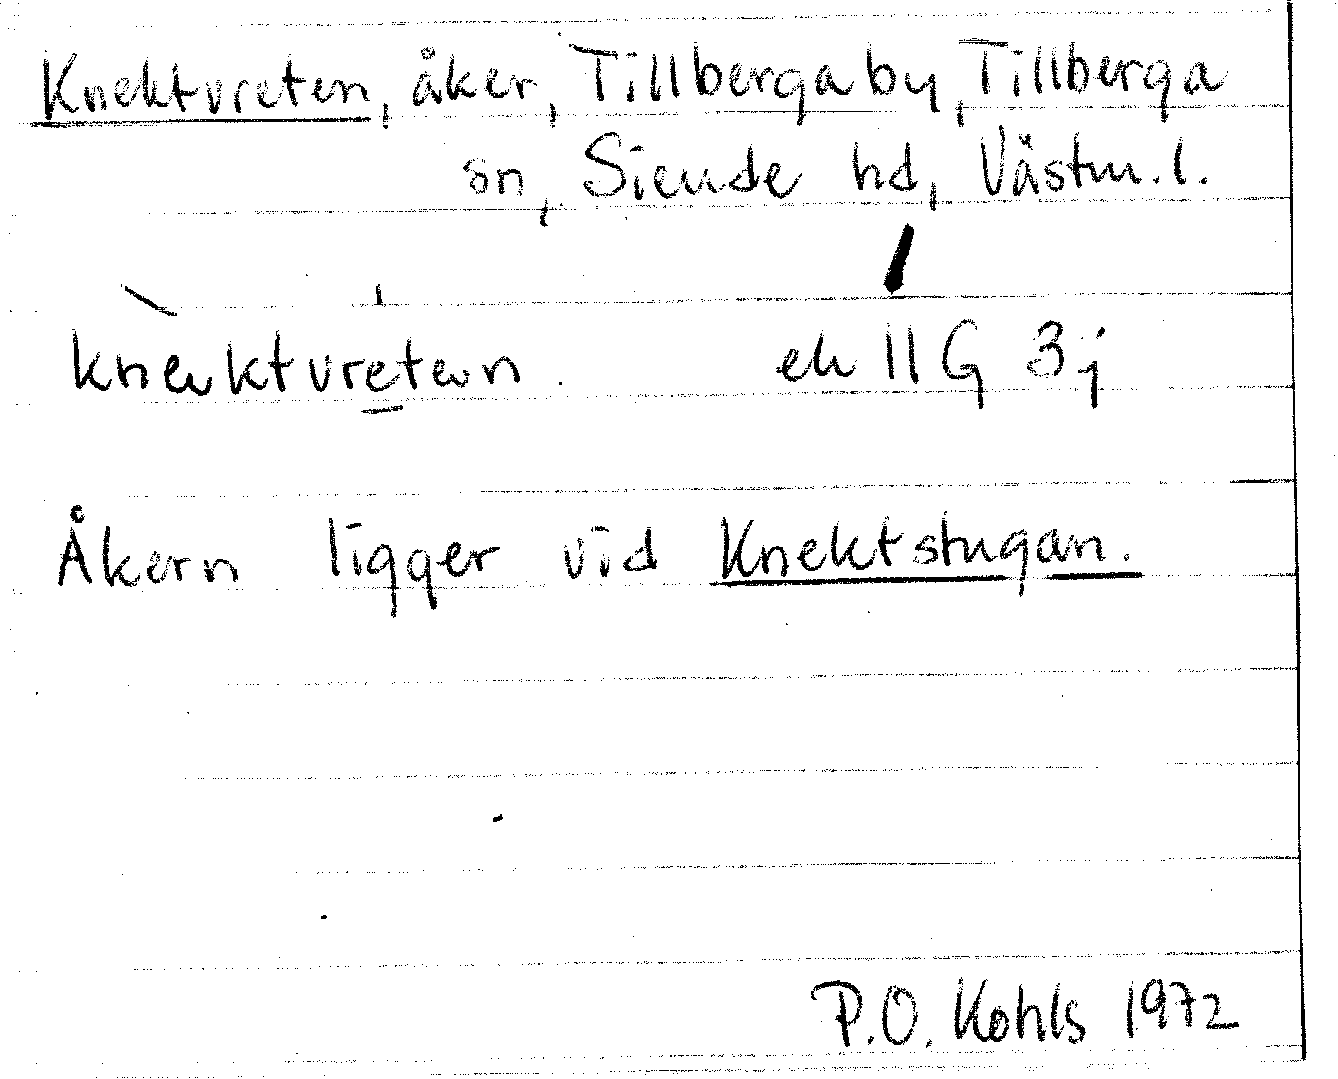 Knektvreten, åker, Tillberga by, Tillberga
sn, Siende hd, Västm. l.
ek 11 G 3 j
Åkern ligger vid Knektstugan.
P.O. Kohls 1972